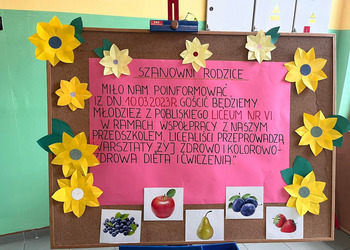 SZANOWNI RODZICE
MIŁO NAM POINFORMOWAĆ
IŻ DN. 10.03.2023R. GOŚCIĆ BĘDZIEMY
MŁODZIEŻ Z POBLISKIEGO LICEUM NR VI.
W RAMACH WSPÓŁPRACY Z NASZYM
PRZEDSZKOLEM, LICEALIŚCI PRZEPROWADZĄ
WARSZTATY „ŻYJ ZDROWO I KOLOROWO-
ZDROWA DIETA I ĆWICZENIA”